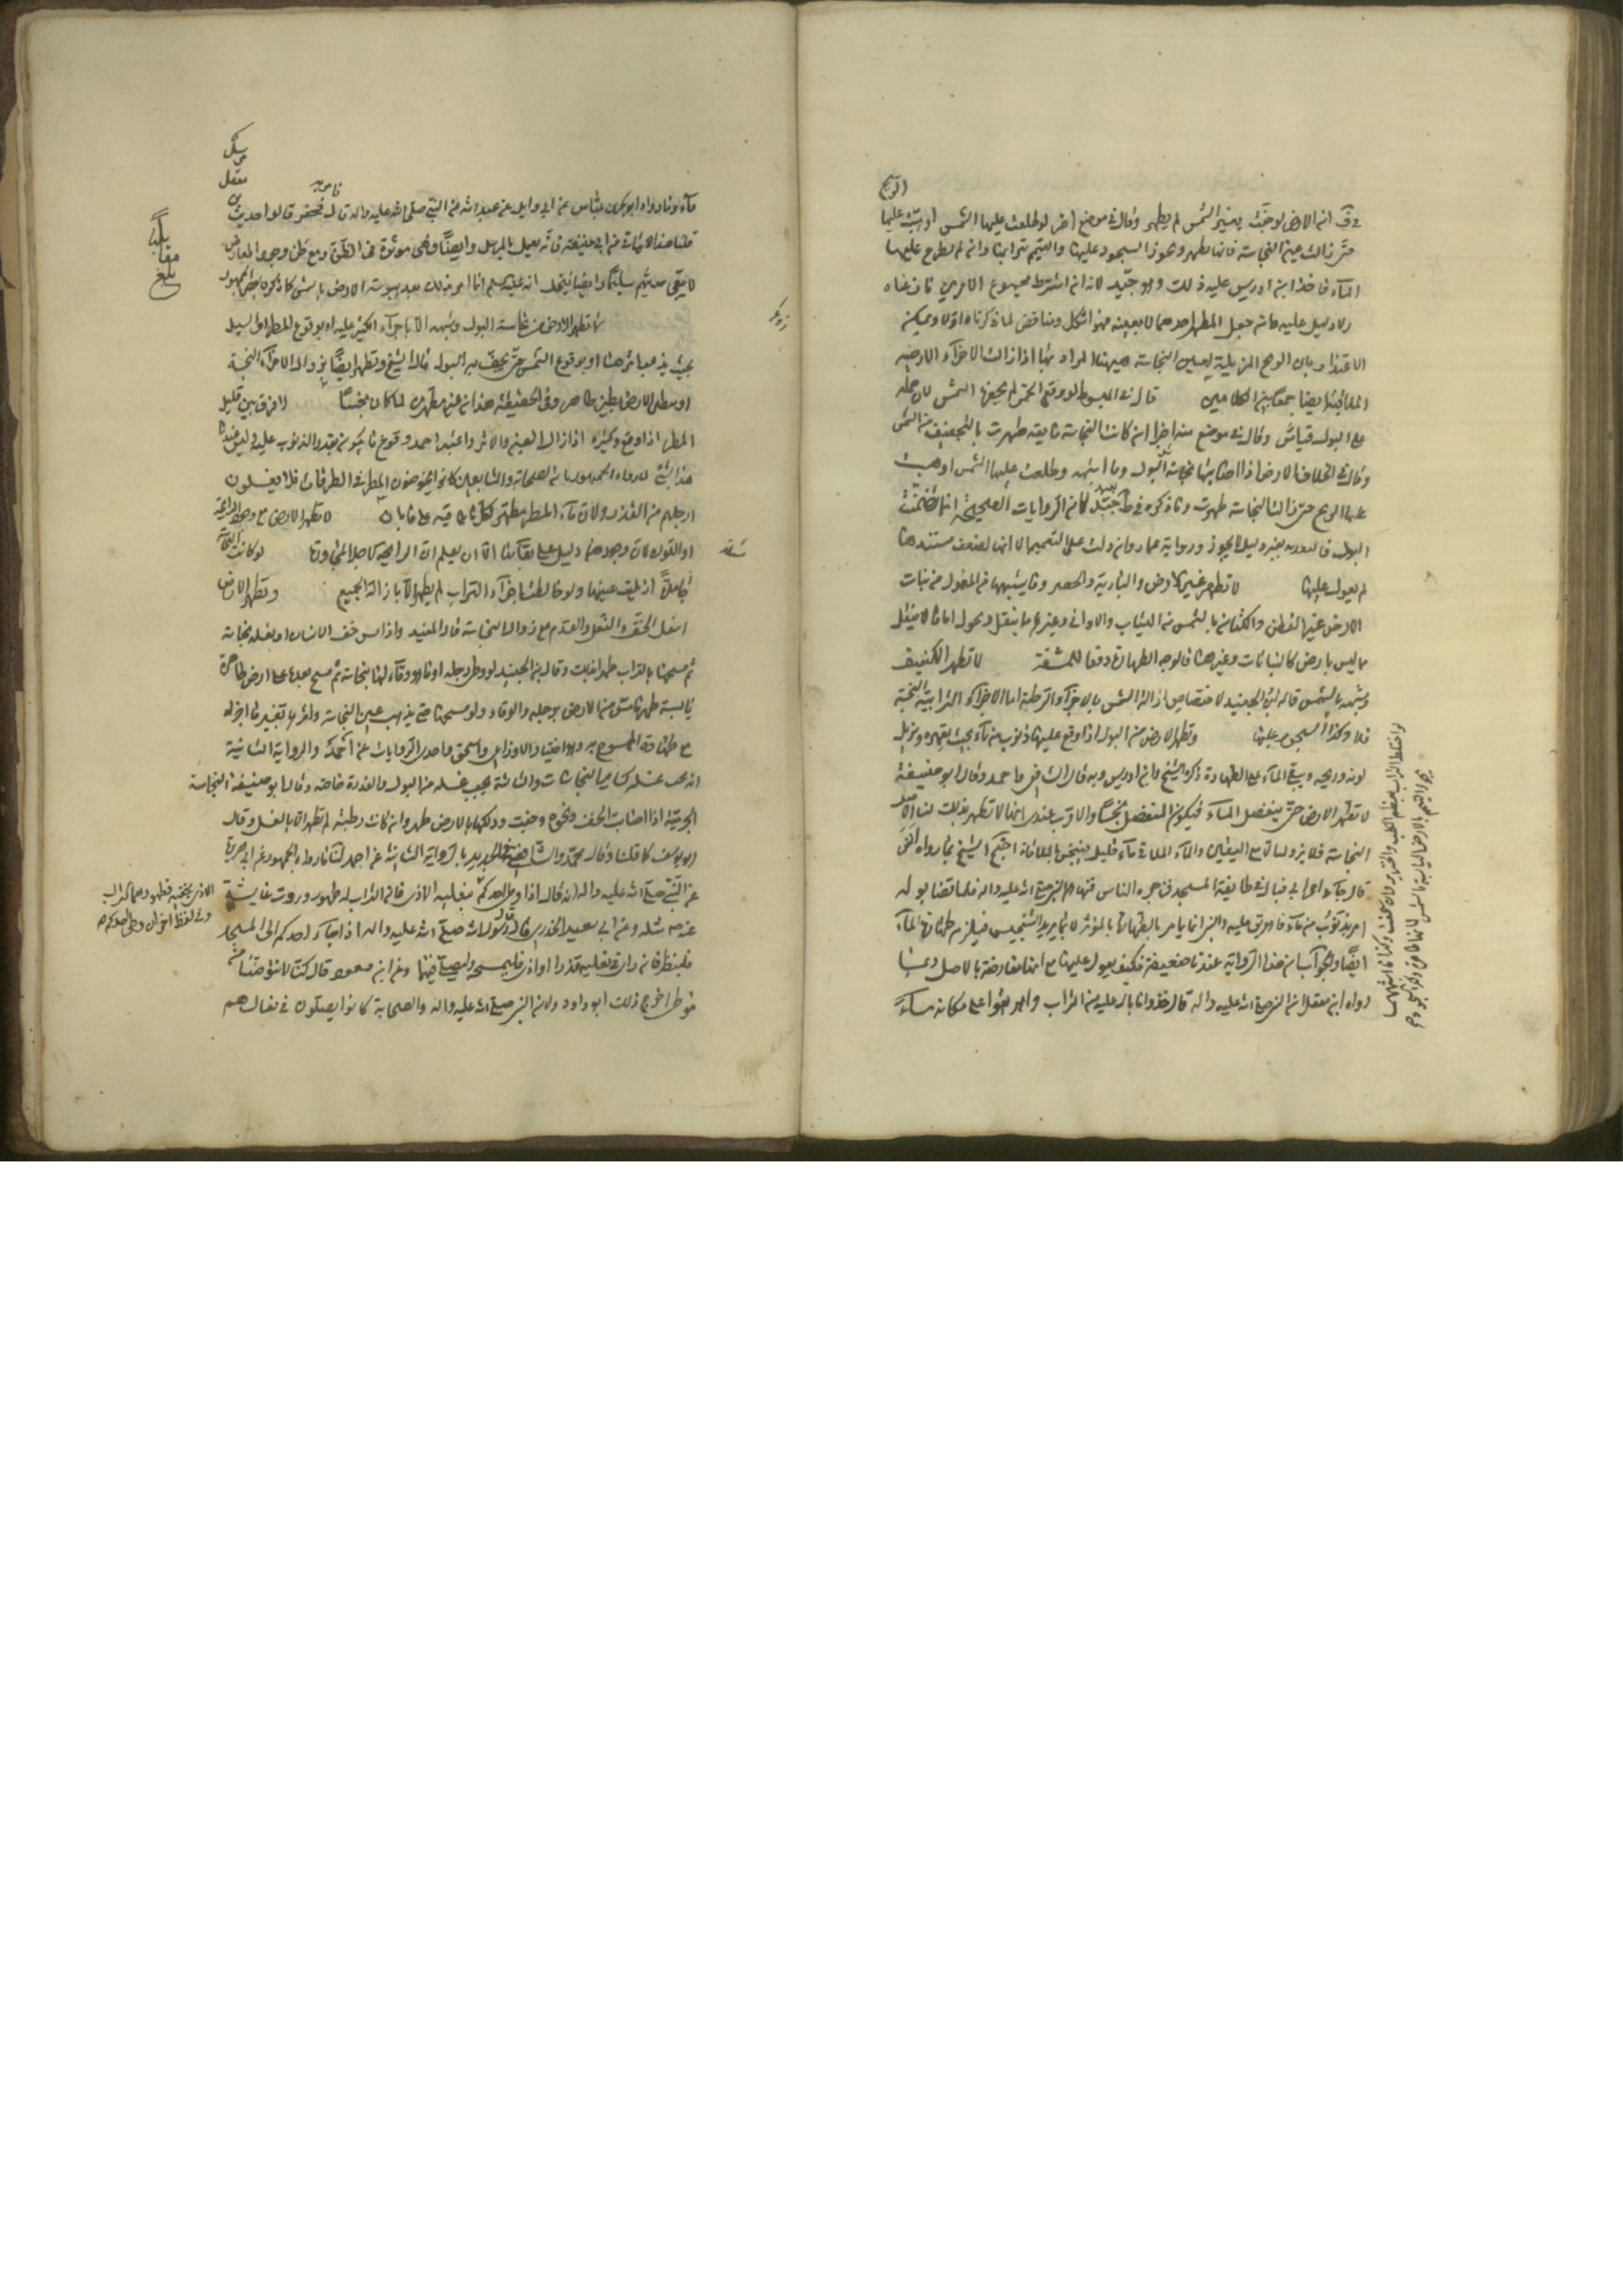 في ف ان الارض لو جفت بغير الشمس لم يطهر وقال في موضع اخر لو طلعت عليها الشمس او هبت عليها
الريح
حتى زالت عين النجاسة فانها تطهر ويجوز السجود عليها والتيمم بترابها وان لم يطرح عليها
الماء فاخذ ابن ادريس عليه ذلك وهو جيد لانه ان اشترط مجموع الامرين
ولا دليل عليه وان جعل المطهر احدهما لا بعينه فهو اشكل ومناقض لما ذكرناه اولا ويمكن
الاعتذار بان الريح المزيلة لعين النجاسة هيهنا المراد بها اذا زالت الاجزاء الارضية
الملاقية ايضا جمعا بين الكلامين قال في المبسوط لو وقع الخمر لم يجففها الشمس لان حمله
على البول قياس وقال في موضع منه اخر ان كانت النجاسة مايعة طهرت بالتجفيف من الشمس
وقال في الخلاف الارض اذا اصابتها نجاسة البول وما اشبهه وطلعت عليها الشمس او هبت
عليها الريح حتى زالت النجاسة طهرت وما ذكره في ط جيد لان الروايات الصحيحة انما تضمنت
البول فالتعدية بغير دليل لا يجوز ورواية عمار وان دلت على التعميم الا انها لضعف مستندها
لم يعول عليها لا تطهر غير الارض والبارية والحصر وما يشبههما من المعمول من نبات
الارض غير القطن والكتان بالشمس من الثياب والاواني وغيرها مما ينقل ويحول اما ما لا ينقل
مما ليس بارض كالنباتات وغيرها فالوجه الطهارة دفعا للمشقة لا تطهر الكنيف
وشبهه بالشمس قاله ابن الجنيد لاختصاص ازالة الشمس بالاجزاء الرطبة اما الاجزاء الترابية النجسة
فلا وكذا المسجون عليها وتطهر الارض من البول اذا وقع عليها ذنوب من ماء بحيث يقهره ويزيل
لونه وريحه ويبقى الماء على الطهارة ذكره الشيخ وابن ادريس وبه قال الشافعي واحمد وقال ابو حنيفة
لا تطهر الارض حتى ينفصل الماء فيكون المنفصل نجسا والاقرب عندي انها لا تطهر بذلك لنا ان
النجاسة فلا يزول مع اليقين والماء الملاقي ماء قليل ينجس بالملاقاة احتج الشيخ بما رواه انس
قال جاء اعرابي فبال في طايفة المسجد فزجره الناس فنهاهم النبي صلى الله عليه واله فلما قضا بوله
امر بذنوب من ماء فاهريق عليه والنبي انما يامر بالطهارة بالمؤثر لا بما يزيد التنجيس فيلزم طهارة الماء
ايضا والجواب ان هذا الرواية عندنا ضعيفة فكيف يعول عليها مع انها معارضة بالاصل وبما
رواه ابن معقل ان النبي صلى الله عليه واله قال خذوا ما بال عليه من التراب واهريقوا على مكانه ماء
لو اختلط التراب
ماء وما رواه ابو بكر بن عياش عن ابي وايل عن عبد الله عن النبي صلى الله عليه واله قال فحفر قالوا حديث
قلنا هذا لا يتاتى من ابي حنيفة فانه يعمل بالمرسل وايضا فهى موثرة في الظن ومع ظن وجود المعارض
لا يبقى معه يقين سليما وايضا يحتمل انه عليه السلم انما امر بذلك بعد يبوسة الارض بالشمس كما ذكره بعض الجمهور
لا تطهر الارض من نجاسة البول وشبهه الا باجراء الكثير عليه او بوقوع المطر او السيل
بحيث يذهب اثرها او بوقوع الشمس حتى يجف من البول قال الشيخ وتطهر ايضا بزوال الاجزاء النجسة
او بتطيين الارض بطين طاهر وفي الحقيقة هذان غير مطهرين لما كان نجسا لا فرق بين قليل
المطر اذا وقع وكثيره اذا زالت العين والاثر واعتبر احمد وقوع ما يكون بقدر الذنوب عليه وليس
هذا بشئ لما رواه الجمهور ان الصحابة والتابعين كانوا يخوضون المطر في الطرقات فلا يغسلون
ارجلهم من القذر ولان ماء المطر مطهر لكل ما يلاقيه على ما بان لا تطهر الارض مع وجود الرائحة
او اللون لان وجودهما دليل على بقائها الا ان يعلم ان الرايحة لاجل المجاورة لو كانت النجاسة
جامدة ازيلت عينها ولو خالطت اجزاء التراب لم يطهر الا بازالة الجميع وتطهر الارض
اسفل الخف والنعل والقدم مع زوال النجاسة قال المفيد واذا مس خف الانسان او نعله نجاسة
ثم مسحها بالتراب طهر بذلك وقال ابن الجنيد لو وطى برجله او ما هو وقاء لها نجاسة ثم مسح بعدها على ارض طاهرة
يابسة طهر ماس من الارض برجليه والوقاء ولو مسحها حتى يذهب عين النجاسة واثرها بغير ماء اجزاه
مع طهارة الممسوح به وهو اختيار الاوزاعي واسحق واحدى الروايات عن احمد والرواية الثانية
انه يجب غسله كساير النجاسات والثالثة يجب غسله من البول والعذرة خاصة وقال ابو حنيفة النجاسة
الجرمية اذا اصابت الخف ونحوه وجفت ودلكها بالارض طهر وان كانت رطبة لم تطهر الا بالغسل وقال
ابو يوسف كما قلنا وقال محمد والشافعي في الجديد بالرواية الثانية عن احمد لنا ما رواه الجمهور عن ابي هريرة
عن النبي صلى الله عليه واله انه قال اذا وطى احدكم بنعليه الاذى فان التراب له طهور وروت عايشة
عنه ص مثله وعن ابي سعيد الخدري قال قال رسول الله صلى الله عليه واله اذا جاء احدكم الى المسجد
فلينظر فان راى في نعليه قذرا او اذى فليمسحه وليصل فيهما وعن ابن مسعود قال كنا لا نتوضا من
موطى اخرج ذلك ابو داود ولان النبي صلى الله عليه واله والصحابة كانوا يصلون في نعالهم
بلغ
الاذى بخفيه فطهورهما التراب
وفي لفظ اخر